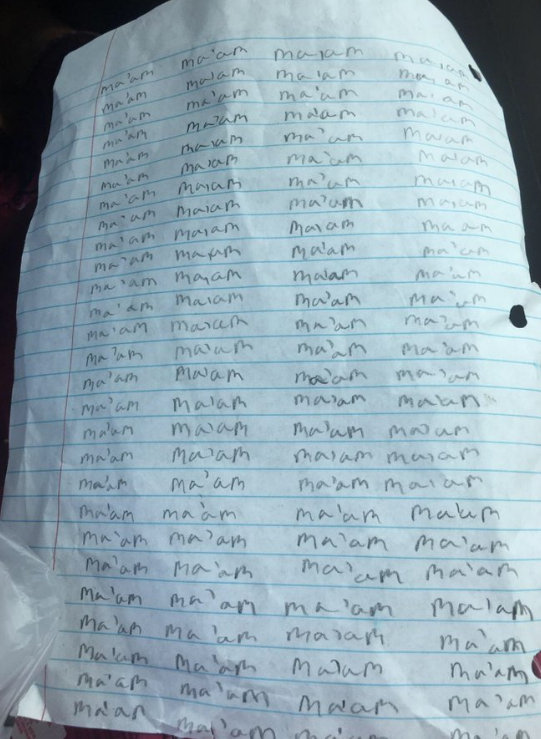 ma'am ma'am ma'am ma'am
ma'am ma'am ma'am ma'am
ma'am ma'am ma'am ma'am
ma'am ma'am ma'am ma'am
ma'am ma'am ma'am ma'am
ma'am ma'am ma'am ma'am
ma'am ma'am ma'am ma'am
ma'am ma'am ma'am ma'am
ma'am ma'am ma'am ma'am
ma'am ma'am ma'am ma'am
ma'am ma'am ma'am ma'am
ma'am ma'am ma'am ma'am
ma'am ma'am ma'am ma'am
ma'am ma'am ma'am ma'am
ma'am ma'am ma'am ma'am
ma'am ma'am ma'am ma'am
ma'am ma'am ma'am ma'am
ma'am ma'am ma'am ma'am
ma'am ma'am ma'am ma'am
ma'am ma'am ma'am ma'am
ma'am ma'am ma'am ma'am
ma'am ma'am ma'am ma'am
ma'am ma'am ma'am ma'am
ma'am ma'am ma'am ma'am
ma'am ma'am ma'am ma'am
ma'am ma'am ma'am ma'am
ma'am ma'am ma'am ma'am